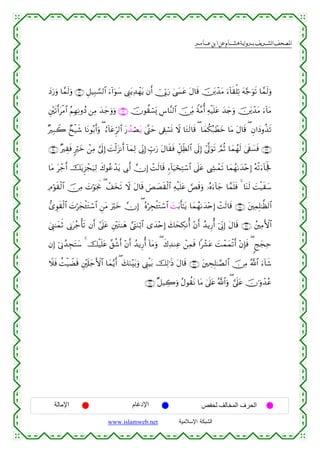 المصحف الشريف برواية هشام عن ابن عامر
وَلَمَّا تَوَجَّهَ تِلْقَآءَ مَدْيَنَ قَالَ عَسَىٰ رَبِّىٓ أَن يَهْدِيَنِى سَوَآءَ ٱلسَّبِيلِ وَلَمَّا وَرَدَ
مَآءَ مَدْيَنَ وَجَدَ عَلَيْهِ أُمَّةً مِّنَ ٱلنَّاسِ يَسْقُونَ وَوَجَدَ مِن دُونِهِمُ ٱمْرَأَتَيْنِ
تَذُودَانِ قَالَ مَا خَطْبُكُمَا قَالَتَا لَا نَسْقِى حَتَّىٰ يَصْدُرَ ٱلرِّعَآءُ وَأَبُونَا شَيْخٌ كَبِيرٌ
فَسَقَىٰ لَهُمَا ثُمَّ تَوَلَّىٰٓ إِلَى ٱلظِّلِّ فَقَالَ رَبِّ إِنِّى لِمَآ أَنزَلْتَ إِلَىَّ مِنْ خَيْرٍ فَقِيرٌ
فَجَآءَتْهُ إِحْدَىٰهُمَا تَمْشِى عَلَى ٱسْتِحْيَآءٍ قَالَتْ إِنَّ أَبِى يَدْعُوكَ لِيَجْزِيَكَ أَجْرَ مَا
سَقَيْتَ لَنَا فَلَمَّا جَآءَهُۥ وَقَصَّ عَلَيْهِ ٱلْقَصَصَ قَالَ لَا تَخَفْ نَجَوْتَ مِنَ ٱلْقَوْمِ
ٱلظَّٰلِمِينَ قَالَتْ إِحْدَىٰهُمَا يَٰٓأَبَتَ ٱسْتَـْٔجِرْهُ إِنَّ خَيْرَ مَنِ ٱسْتَـْٔجَرْتَ ٱلْقَوِىُّ
ٱلْأَمِينُ قَالَ إِنِّىٓ أُرِيدُ أَنْ أُنكِحَكَ إِحْدَى ٱبْنَتَىَّ هَٰتَيْنِ عَلَىٰٓ أَن تَأْجُرَنِى ثَمَٰنِىَ
حِجَجٍ فَإِنْ أَتْمَمْتَ عَشْرًا فَمِنْ عِندِكَ وَمَآ أُرِيدُ أَنْ أَشُقَّ عَلَيْكَ سَتَجِدُنِىٓ إِن
شَآءَ ٱللَّهُ مِنَ ٱلصَّٰلِحِينَ قَالَ ذَٰلِكَ بَيْنِى وَبَيْنَكَ أَيَّمَا ٱلْأَجَلَيْنِ قَضَيْتُ فَلَا
عُدْوَٰنَ عَلَىَّ وَٱللَّهُ عَلَىٰ مَا نَقُولُ وَكِيلٌ
الحرف المخالف لحفص الإدغام الإمالة
الشبكة الإسلامية www.islamweb.net